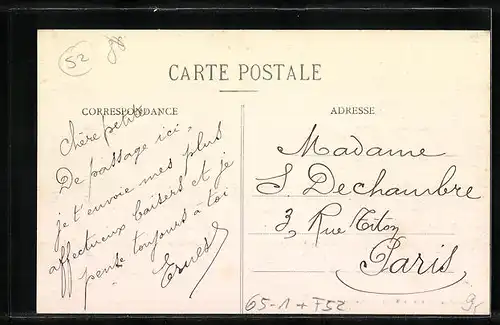 52
CARTE POSTALE
CORRESPONDANCE
ADRESSE
Chère petite
De passage ici,
je t'envoie mes plus
affectueux baisers et je
pense toujours à toi
Ernest
Madame
S. Dechambre
3, Rue Titon
Paris
65-1+F52